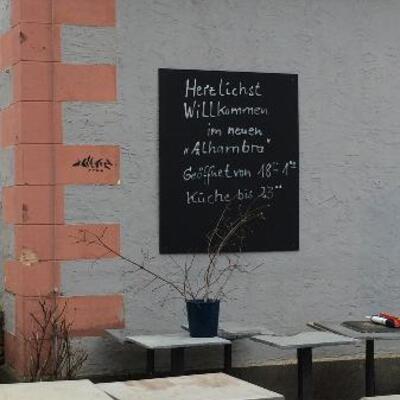 Herzlichst
Willkommen
im neuen
„Alhambra"
Geöffnet von 18-1⁰⁰
Küche bis 23⁰⁰